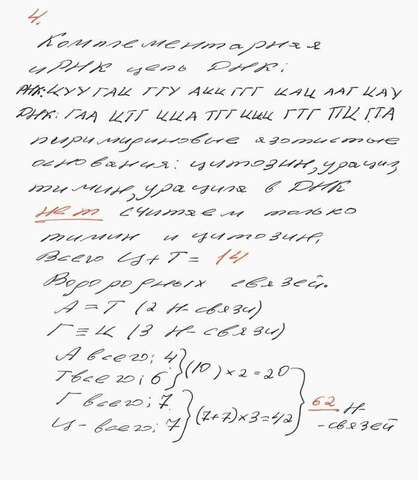 4.
Комплементарная
иРНК цепь ДНК:
РНК: ЦУУ ГАЦ ГГУ АЦЦ ГГГ ЦАЦ ААГ ЦАУ
ДНК: ГАА ЦТГ ЦЦА ТГГ ЦЦЦ ГТГ
пиримириновые азотистые
основания: цитозин, урацил
тимин, урацила в ДНК
нет считаем только
тимин и цитозин,
Всего Ц+Т= 14
Водородных связей.
А=Т (2 Н-связи)
Г≡Ц (3 Н-связи)
А всего: 4
Т всего: 6 } (10) × 2 = 20
Г всего: 7
Ц-всего: 7 } (7+7)×3=42
62 Н-
-связей